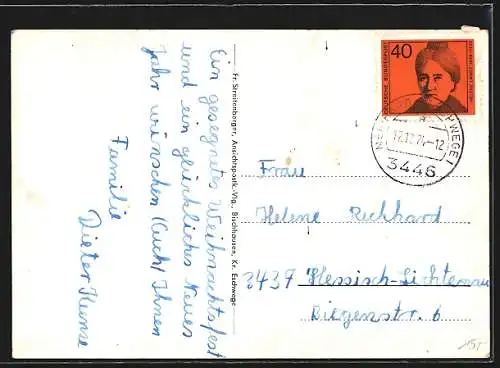 Ein gesegnetes Weihnachtsfest
und ein glückliches Neues
Jahr wünschen (Euch) Ihnen
Familie
Dieter
Fr. Streitenberger, Ansichtspostk.-Vlg., Bischhausen, Kr. Eschwege
40
DEUTSCHE BUNDESPOST
HWEGE)
12.12.74-12
3446
Frau
Helene Richhard
3437 Hessisch-Lichtenau
Biegenstr. 6